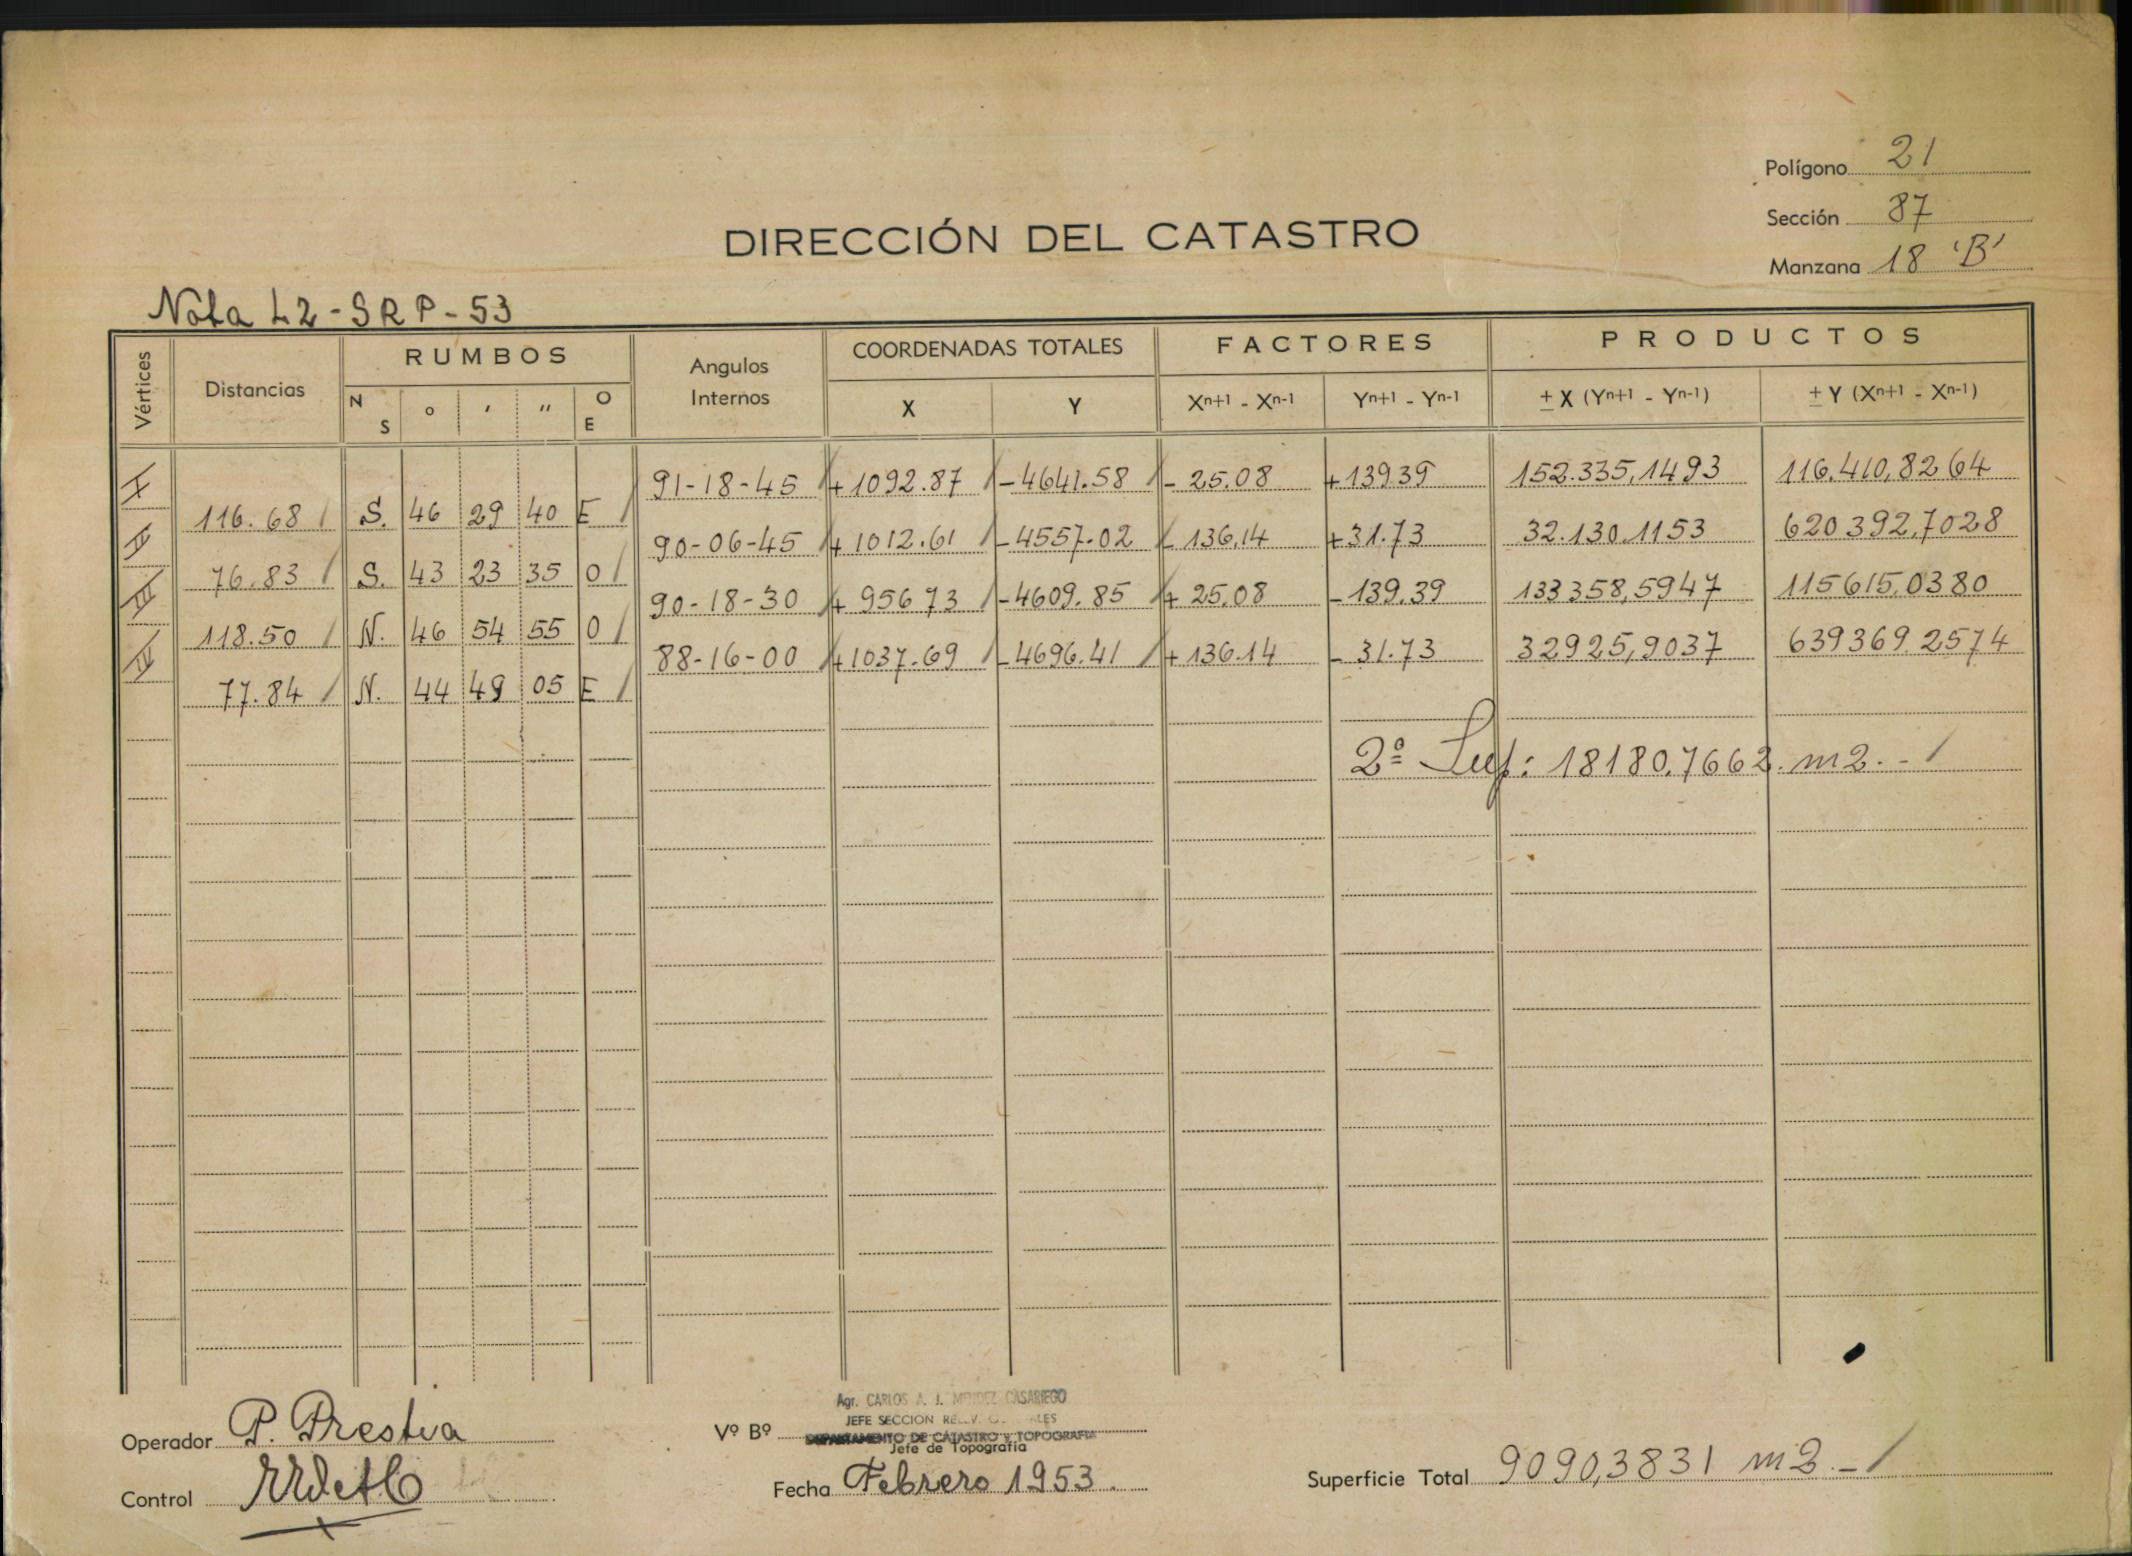 Polígono 21
Sección 87
DIRECCIÓN DEL CATASTRO
Manzana 18 'B'
Nota L2-SRP-53
Vértices Distancias RUMBOS Angulos Internos COORDENADAS TOTALES FACTORES PRODUCTOS
N S o ' '' O E X Y Xn+1 - Xn-1 Yn+1 - Yn-1 ± X (Yn+1 - Yn-1) ± Y (Xn+1 - Xn-1)
I 91-18-45 +1092.87 -4641.58 - 25.08 +139.39 152.335,1493 116.410,8264
116.68 S. 46 29 40 E
II 90-06-45 +1012.61 -4557.02 - 136,14 +31.73 32.130.1153 620392,7028
76.83 S. 43 23 35 O
III 90-18-30 + 956 73 -4609.85 + 25,08 -139.39 133358,5947 115615,0380
118.50 N. 46 54 55 O
IV 88-16-00 +1037.69 -4696.41 +136.14 - 31.73 32925,9037 639369.2574
77.84 N. 44 49 05 E
2º Sup: 18180.7662. m2.-
Agr. CARLOS A. J. MENDEZ CASARIEGO
JEFE SECCION
Operador P. Prestia
Vº Bº DEPARTAMENTO DE CATASTRO y TOPOGRAFIA
Jefe de Topografía
Control
Fecha Febrero 1953.
Superficie Total 9090,3831 m2.-